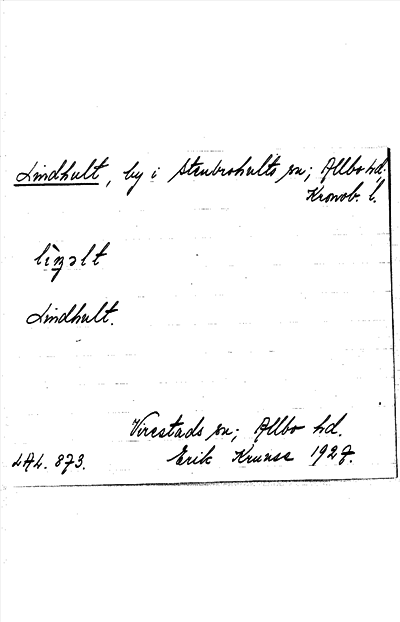 Lindhult, by i Stenbrohults sn; Allbo hd.
Kronob. l.
Lindhult.
Virestads sn; Allbo hd.
LAL. 873. Erik Krunse 1927.